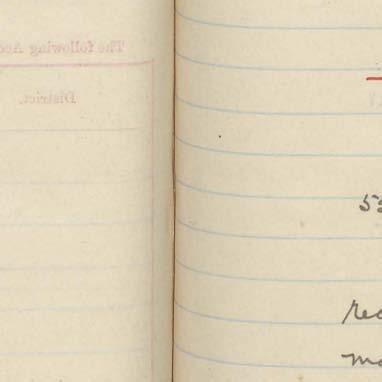 The following Acc
District.
53
rec
mo